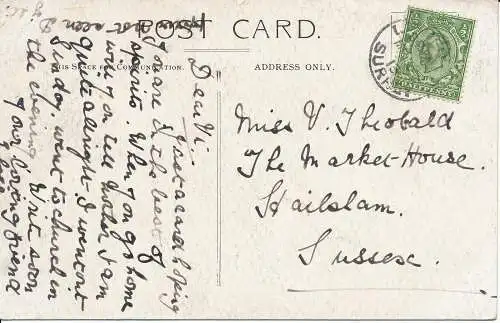 POST CARD.
THIS SPACE FOR COMMUNICATION.
ADDRESS ONLY.
Dear Vi.
Just a card hoping
you are in the best of
spirits. When you go home
will you tell mother I am
quite alright. I went out
Sunday. went to church in
the evening Write soon
Your loving friend
not seen
Miss V. Theobald
The Market-House.
Hailsham.
Sussex.
SURREY